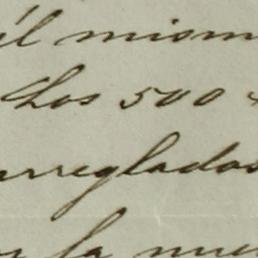 él mism
Los 500
arreglados
la nue